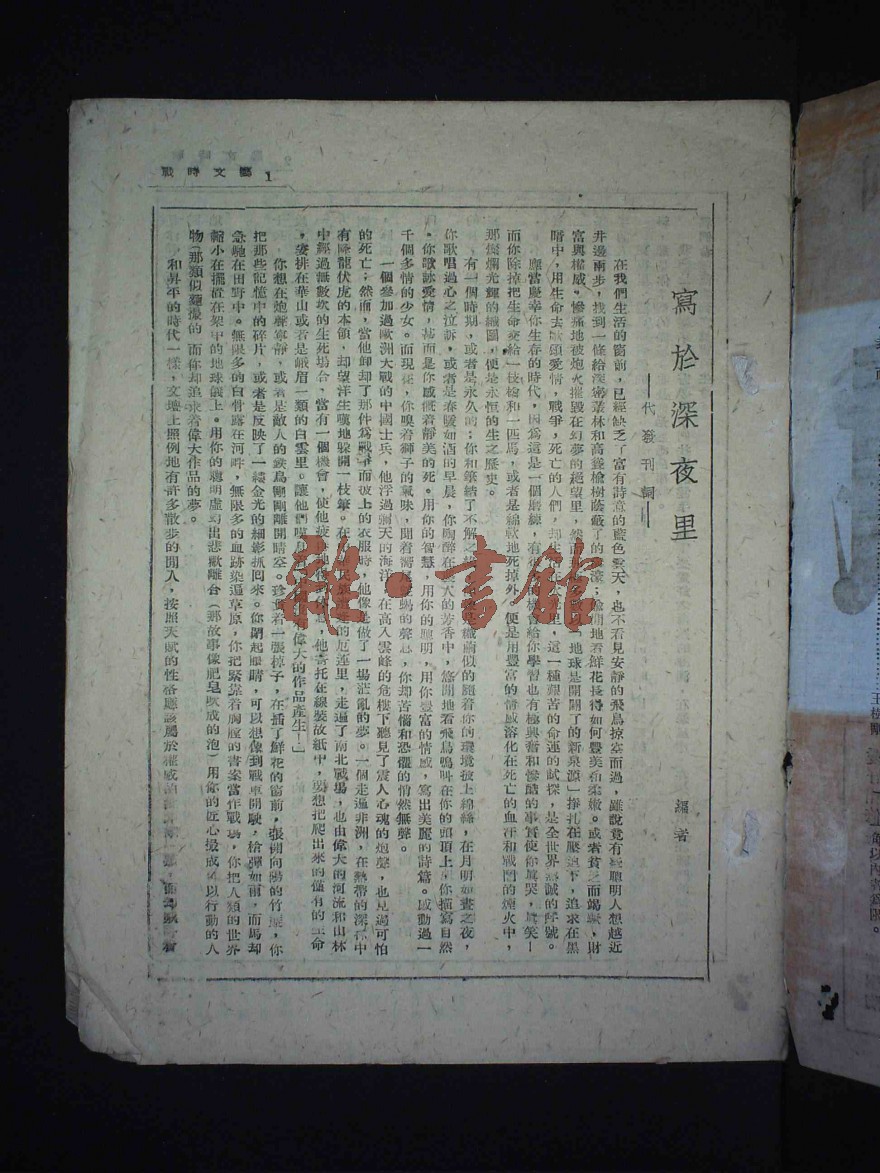 戰時文藝 1
寫於深夜里
——代發刊詞——
編者
在我們生活的窗前，已經缺乏了富有詩意的藍色雲天，也不看見安靜的飛鳥掠空而過，雖說竟有些聰明人想越近
井邊兩步，找到一條給深密叢林和高聳榆樹蔭蔽了的
地看鮮花長得如何豐美和柔嫩。或者貧乏而竭蹶，財
富與權威。慘痛地被炮火摧毀在幻夢的絕望里，然而
「地球是開闢了的新泉源」摻扎在壓迫下，追求在黑
暗中，用生命去歌頌愛情，戰爭，死亡的人們，却生活在
里，這一種艱苦的命運的試探，是全世界
的呼號。
應當慶幸你生春的時代，因為這是一個磨練，有
機會給你學習也有極興奮和慘酷的事實使你真哭，真笑——
而你除掉把生命交給一枝槍和一匹馬，或者是綿軟地死掉外，便是用豐富的情感溶化在死亡的血汗和戰鬥的煙火中，
那燦爛光輝的織圖，便是永恆的生之歷史。
有一個時期，或者是永久的；你和筆結了不解之
織繭似的繞着你的環境披上綿絲，在月明如晝之夜，
你歌唱過心之泣訴，或者是春暖如酒的早晨，你陶醉在
大的芳香中，悠閒地看飛鳥鳴叫在你的頭頂上
你描寫自然
，你歌詠愛情，甚而是你感慨着靜美的死。用你的智慧，用你的聰明，用你豐富的情感，寫出美麗的詩篇。感動過一
千個多情的少女。而現在，你嗅着獅子的氣味，聞着
蝎的聲息，你却苦惱和恐懼的悄然無聲。
一個參加過歐洲大戰的中國士兵，他浮過滿天的海洋，在高入雲峰的危樓下聽見了震人心魂的炮聲，也見過可怕
的死亡；然而，當他卸却了那件為戰爭而披上的衣服時，他像是做了一場茫亂的夢。一個走遍非洲，在熱帶的深林中
有降龍伏虎的本領，却望洋生嘆地躲開一枝筆。在
民族
的厄運里，走遍了南北戰場，也由偉大的河流和山林
中經過無數次的生死場合，當有一個機會，使他疲
地
，他寄托在線裝故紙中，
想把爬出來的僅有的生命
，安排在華山或者是峨眉一類的白雲里。讓他們嘆
偉大的作品產生！」
你想在炮聲寧靜，或者是敵人的鉄鳥剛剛離開晴空。珍重着一張椅子，在插了鮮花的窗前，張開向陽的竹簾，你
把那些記憶中的碎片，或者是反映了一縷金光的細影抓回來。你閉起眼睛，可以想像到戰車開駛，槍彈如雨，而馬却
急馳在田野中。無限多的白骨露在河畔，無限多的血跡染遍草原，你把緊靠着胸膛的書案當作戰場，你把人類的世界
縮小在擺置在架中的地球儀上。用你的聰明虛幻出悲歡離合（那故事像肥皂吹成的泡）用你的匠心撮成
以行動的人
物（那類似麵撮的）而你却追求着偉大作品的夢。
和昇平的時代一樣，文壇上照例地有許多散步的閒人，按照天賦的性格應該屬於權威的